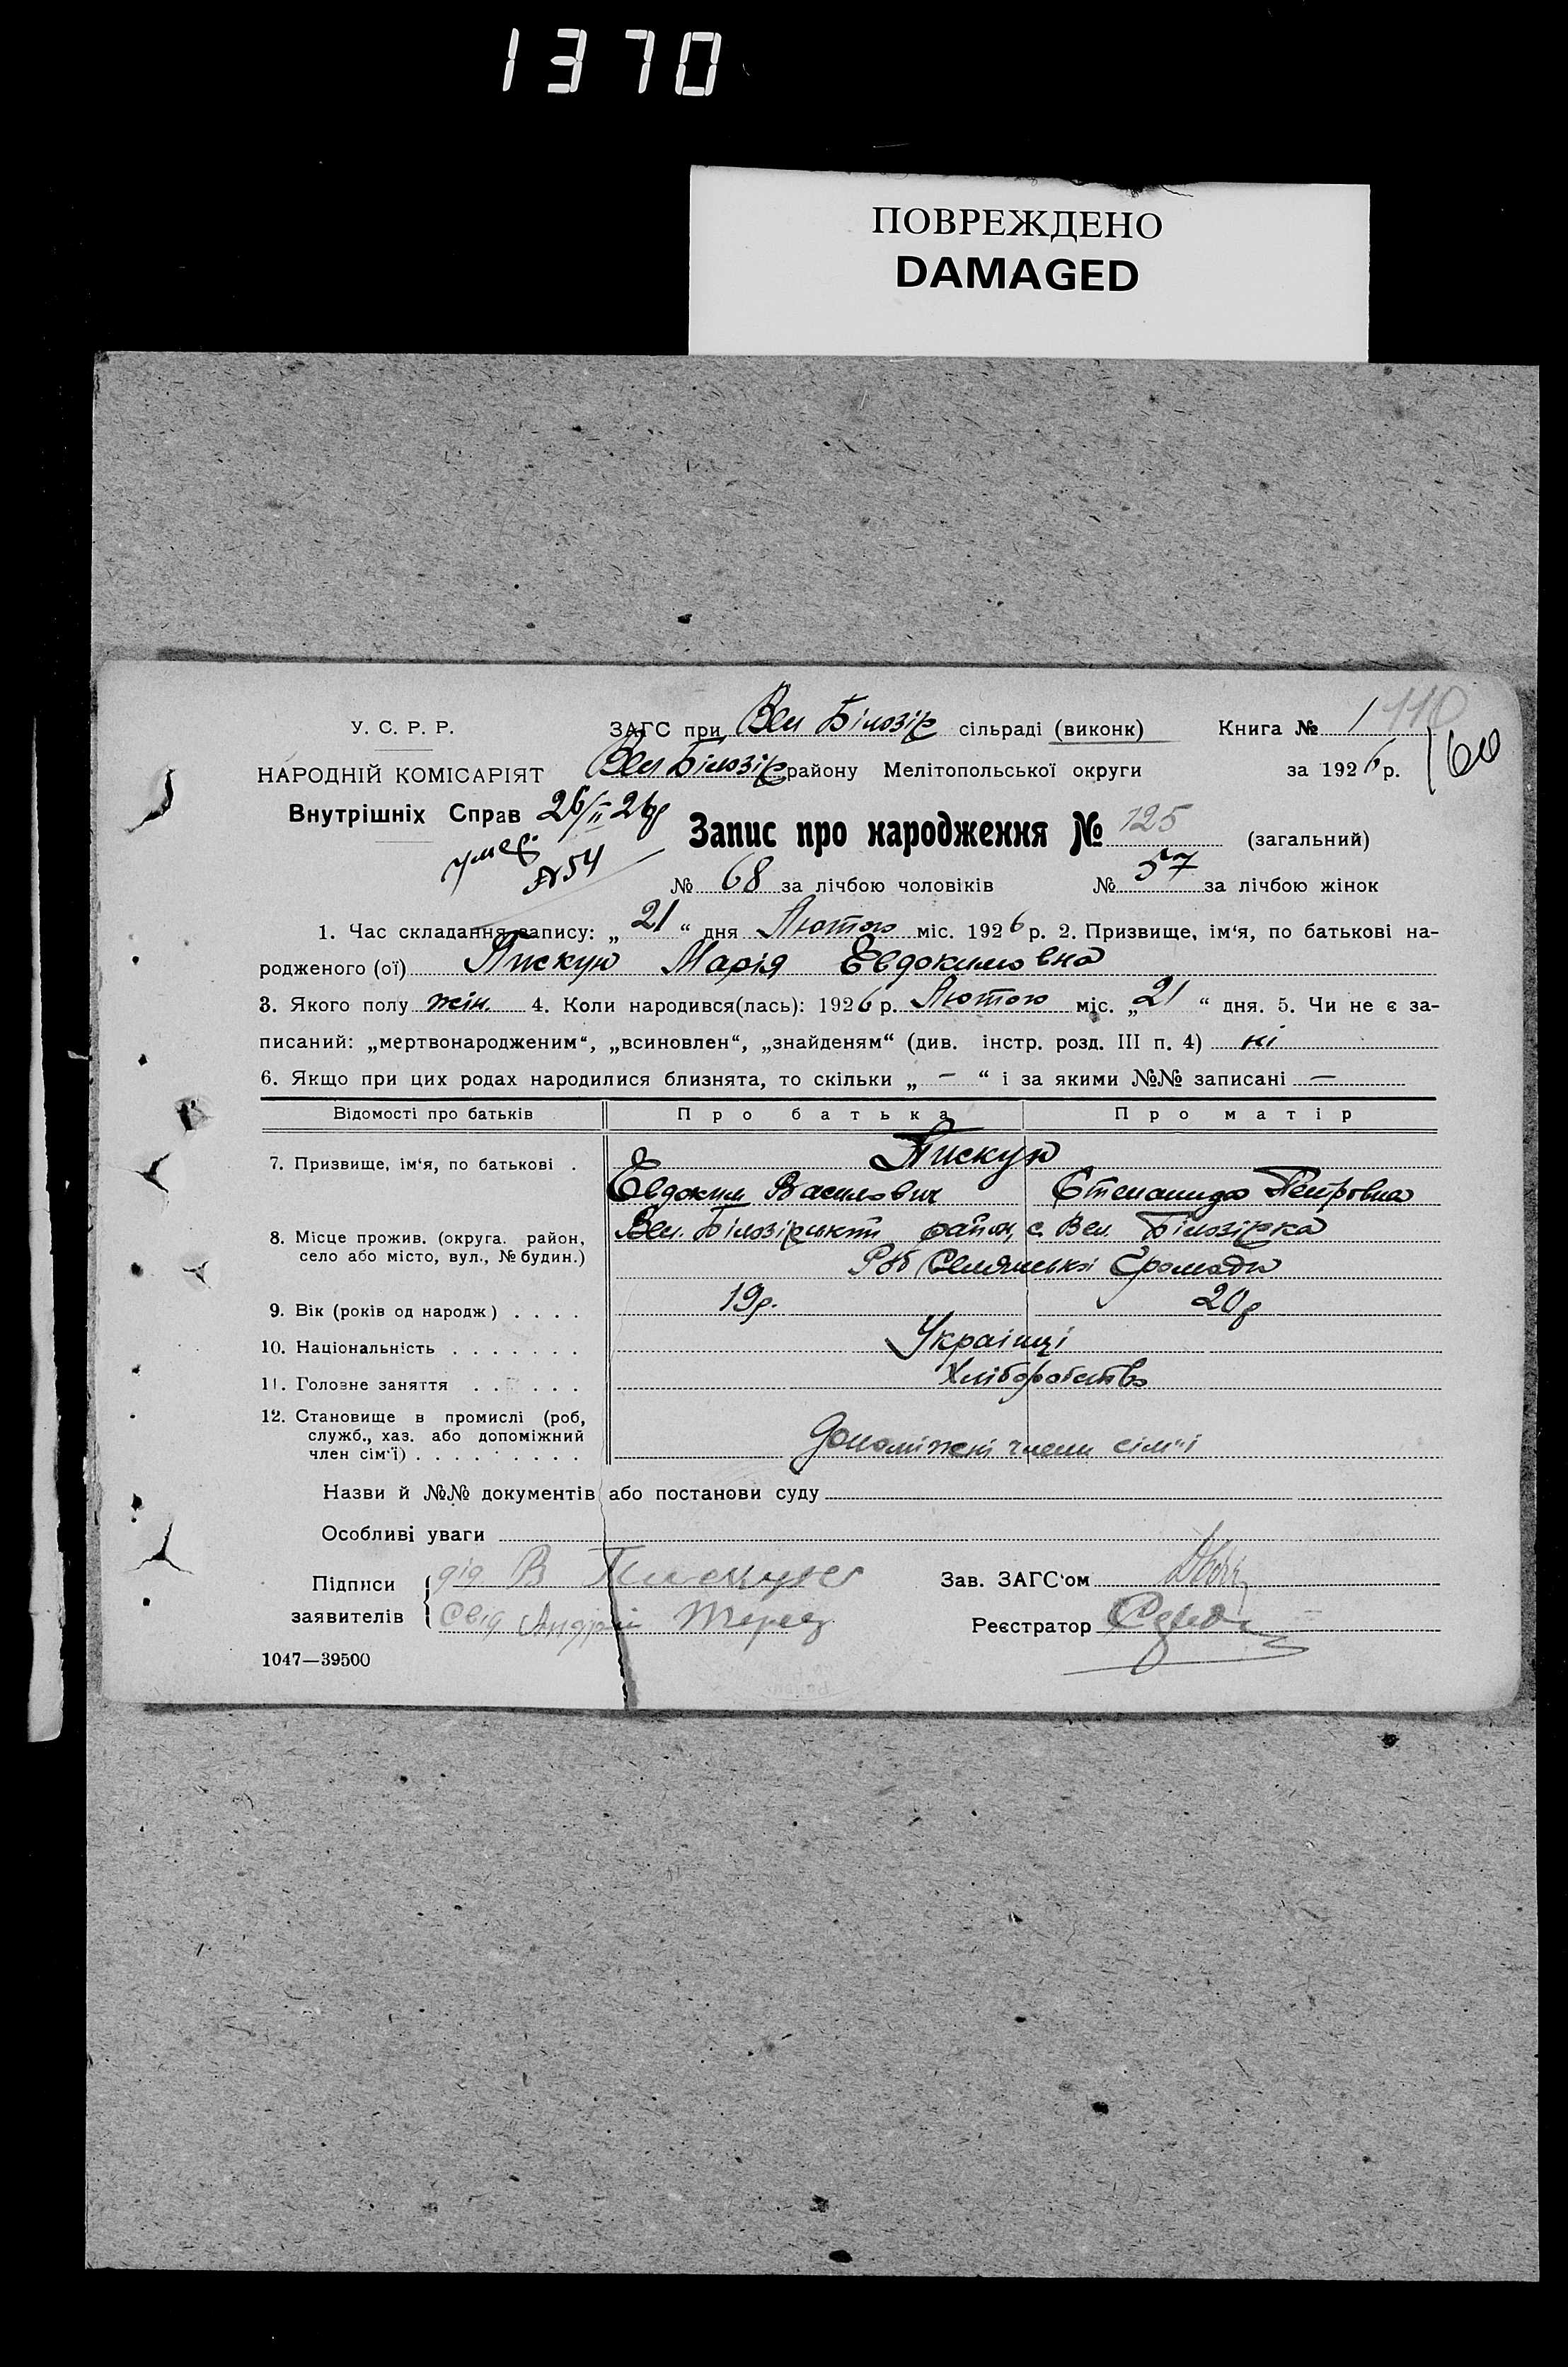 1370
ПОВРЕЖДЕНО
DAMAGED
110
У. С. Р. Р. ЗАГС при Вел Білозір сільраді (виконк) Книга № 1
60
НАРОДНІЙ КОМІСАРІЯТ Вел Білозір району Мелітопольської округи за 1926 р.
Внутрішніх Справ 26/II 26р
умер. №54
Запис про народження № 125 (загальний)
№ 68 за лічбою чоловіків № 57 за лічбою жінок
1. Час складання запису: „ 21 “ дня Лютого міс. 1926 р. 2. Призвище, ім‘я, по батькові на-
родженого (ої) Пискун Марія Евдокимовна
3. Якого полу жін. 4. Коли народився(лась): 1926 р. Лютого міс. „ 21 “ дня. 5. Чи не є за-
писаний: „мертвонародженим“, „всиновлен“, „знайденям“ (див. інстр. розд. III п. 4) ні
6. Якщо при цих родах народилися близнята, то скільки „ — “ і за якими №№ записані —
Відомості про батьків Про батька Про матір
7. Призвище, ім‘я, по батькові . Пискун
Евдоким Василович Степанида Петровна
8. Місце прожив. (округа. район, Вел. Білозірський район, с. Вел. Білозірка
село або місто, вул., № будин.) Селянської Громади
9. Вік (років од народж) . . . . 19р. 20р
10. Національність . . . . . . . Українці
11. Головне заняття . . . . . . Хліборобство
12. Становище в промислі (роб,
служб., хаз. або допоміжний
член сім‘ї) . . . . . . . . Допоміжні члени сім"і
Назви й №№ документів або постанови суду
Особливі уваги
Підписи дід В Пискун Зав. ЗАГС‘ом
заявителів Свід Андрій Реєстратор
1047—39500